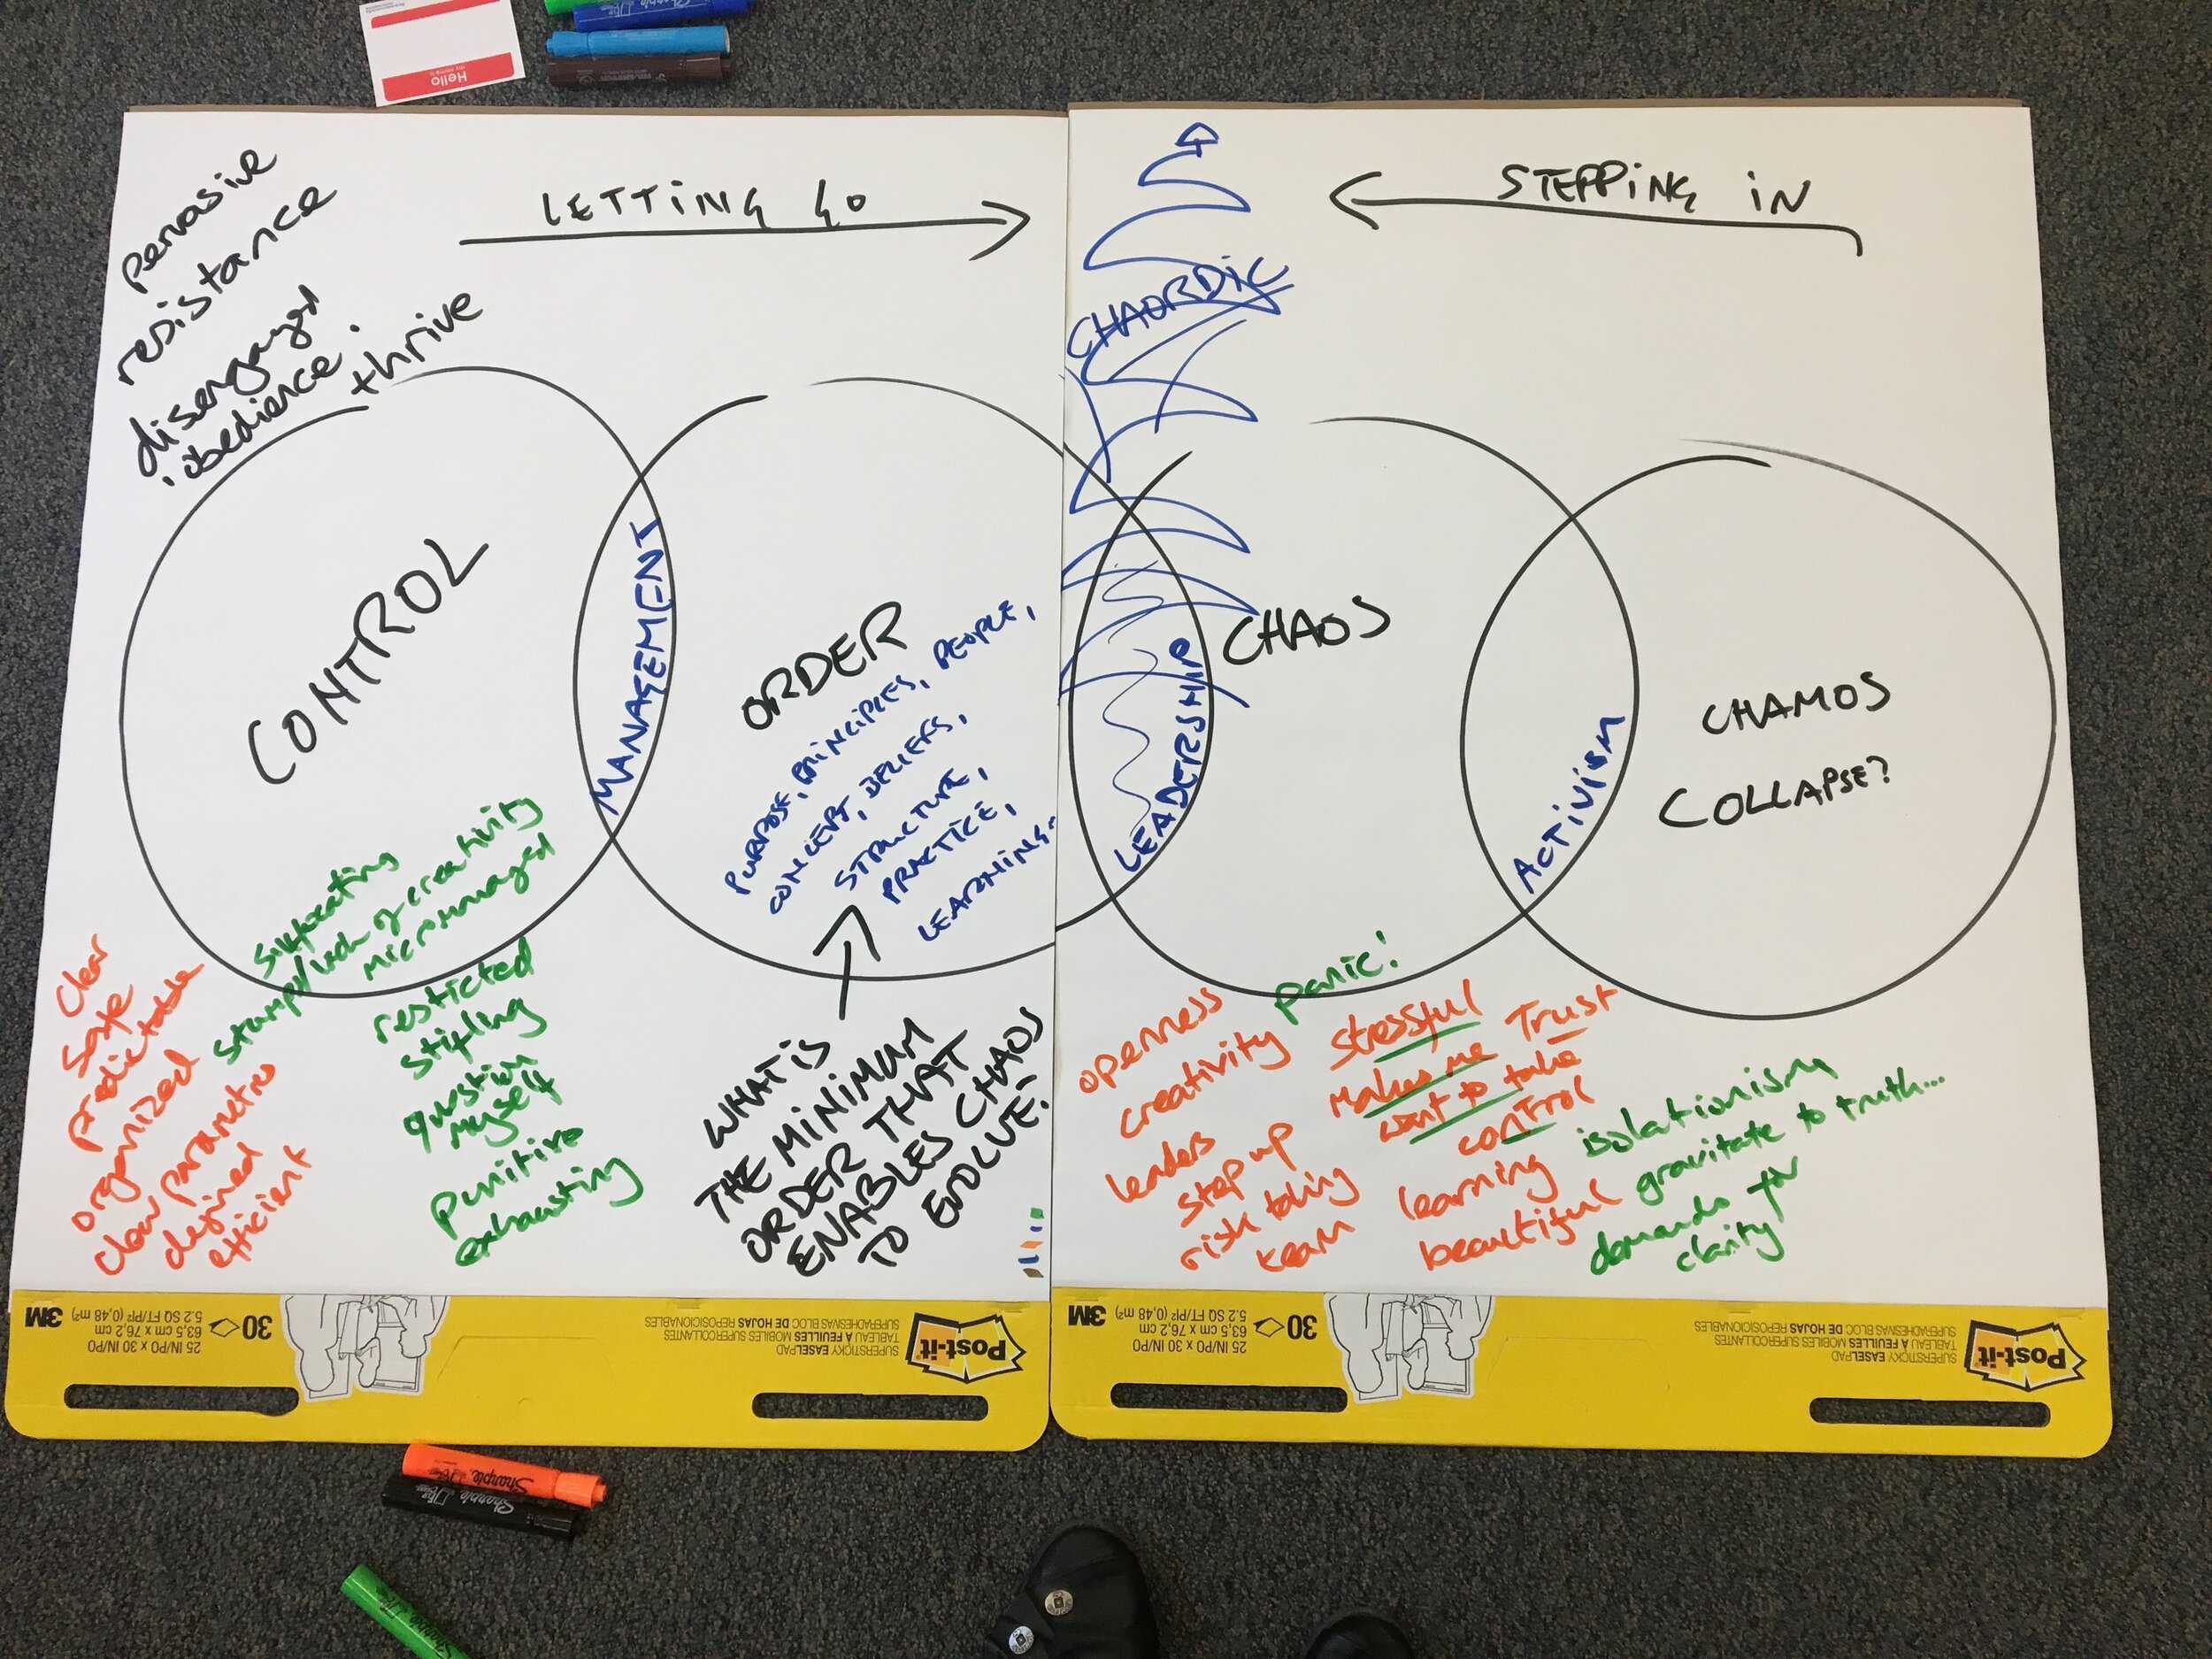 Hello
my name is
Sharpie
pervasive
resistance
disengaged
obedience.
thrive
LETTiNG GO
STEPPiNG iN
CHAORDiC
CONTROL
MANAGEMENT
ORDER
PURPOSE, PRiNCiPLES, PEOPLE,
CONCEPT, BELIEFS,
STRUCTURE,
PRACTiCE,
LEARNiNG.
LEADERSHiP
CHAOS
ACTiViSM
CHAMOS
COLLAPSE?
Clear
safe
predictable
organized
clear parametres
defined
efficient
suffocating
micromanaged
restricted
stifling
question
myself
punitive
exhausting
WHAT iS
THE MiNiMUM
ORDER THAT
ENABLES CHAOS
TO EVOLVE?
panic!
openness
creativity
leaders
step up
risk taking
team
stressful
makes me
want to take
control
Trust
learning
beautiful
isolationism
gravitate to truth...
demands for
clarity
Post-it
SUPERSTICKY EASEL PAD
TABLEAU À FEUILLES MOBILES SUPERCOLLANTES
SUPERADHESIVAS BLOC DE HOJAS REPOSICIONABLES
30
25 IN/PO x 30 IN/PO
63,5 cm x 76,2 cm
5.2 SQ FT/PI² (0,48 m²)
3M
Post-it
SUPERSTICKY EASEL PAD
TABLEAU À FEUILLES MOBILES SUPERCOLLANTES
SUPERADHESIVAS BLOC DE HOJAS REPOSICIONABLES
30
25 IN/PO x 30 IN/PO
63,5 cm x 76,2 cm
5.2 SQ FT/PI² (0,48 m²)
3M
Sharpie
Sharpie
Sharpie